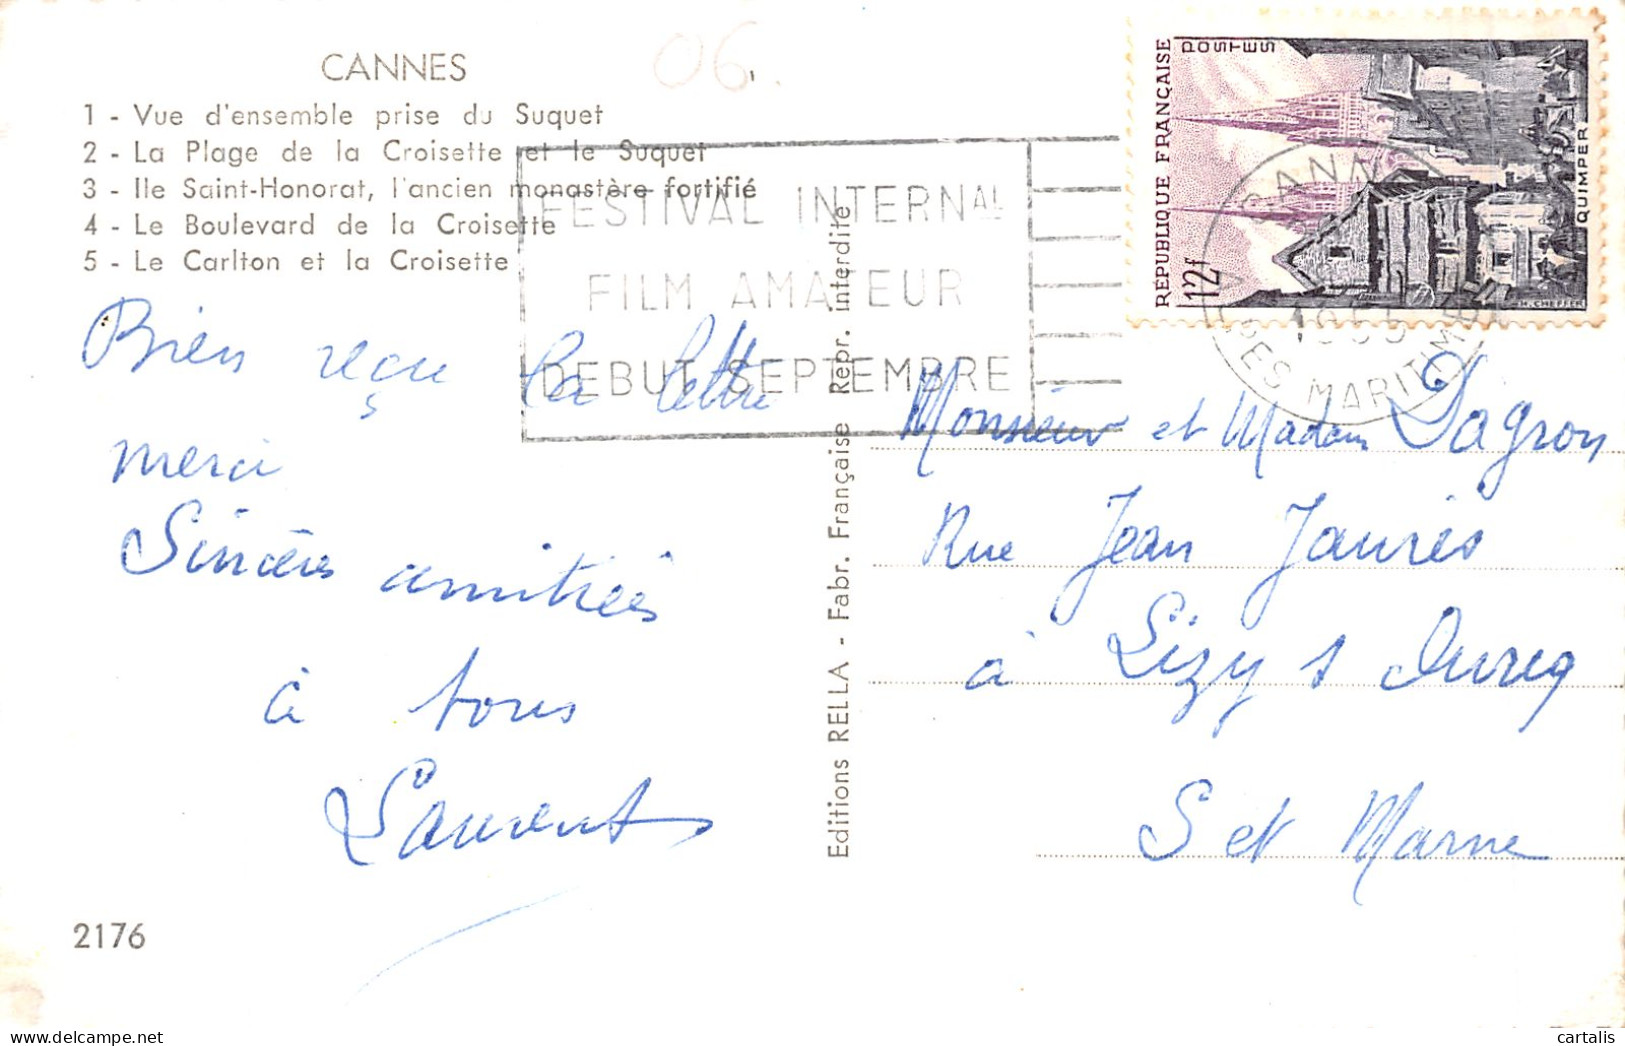 CANNES
06
1 - Vue d'ensemble prise du Suquet
2 - La Plage de la Croisette et le Suquet
3 - Ile Saint-Honorat, l'ancien monastère fortifié
4 - Le Boulevard de la Croisette
5 - Le Carlton et la Croisette
FESTIVAL INTERNAL
FILM AMATEUR
DEBUT SEPTEMBRE
REPUBLIQUE FRANÇAISE
POSTES
12f
QUIMPER
H. CHEFFER
CANNES
1955
DES MARITIMES
Bien reçu la lettre
merci
Sincères amitiés
à tous
Laurent
2176
Editions RELA - Fabr. Française Repr. interdite
Monsieur et Madam Dagron
Rue Jean Jaurès
à Lizy s Ourcq
S et Marne
cartalis
Delcampe.net